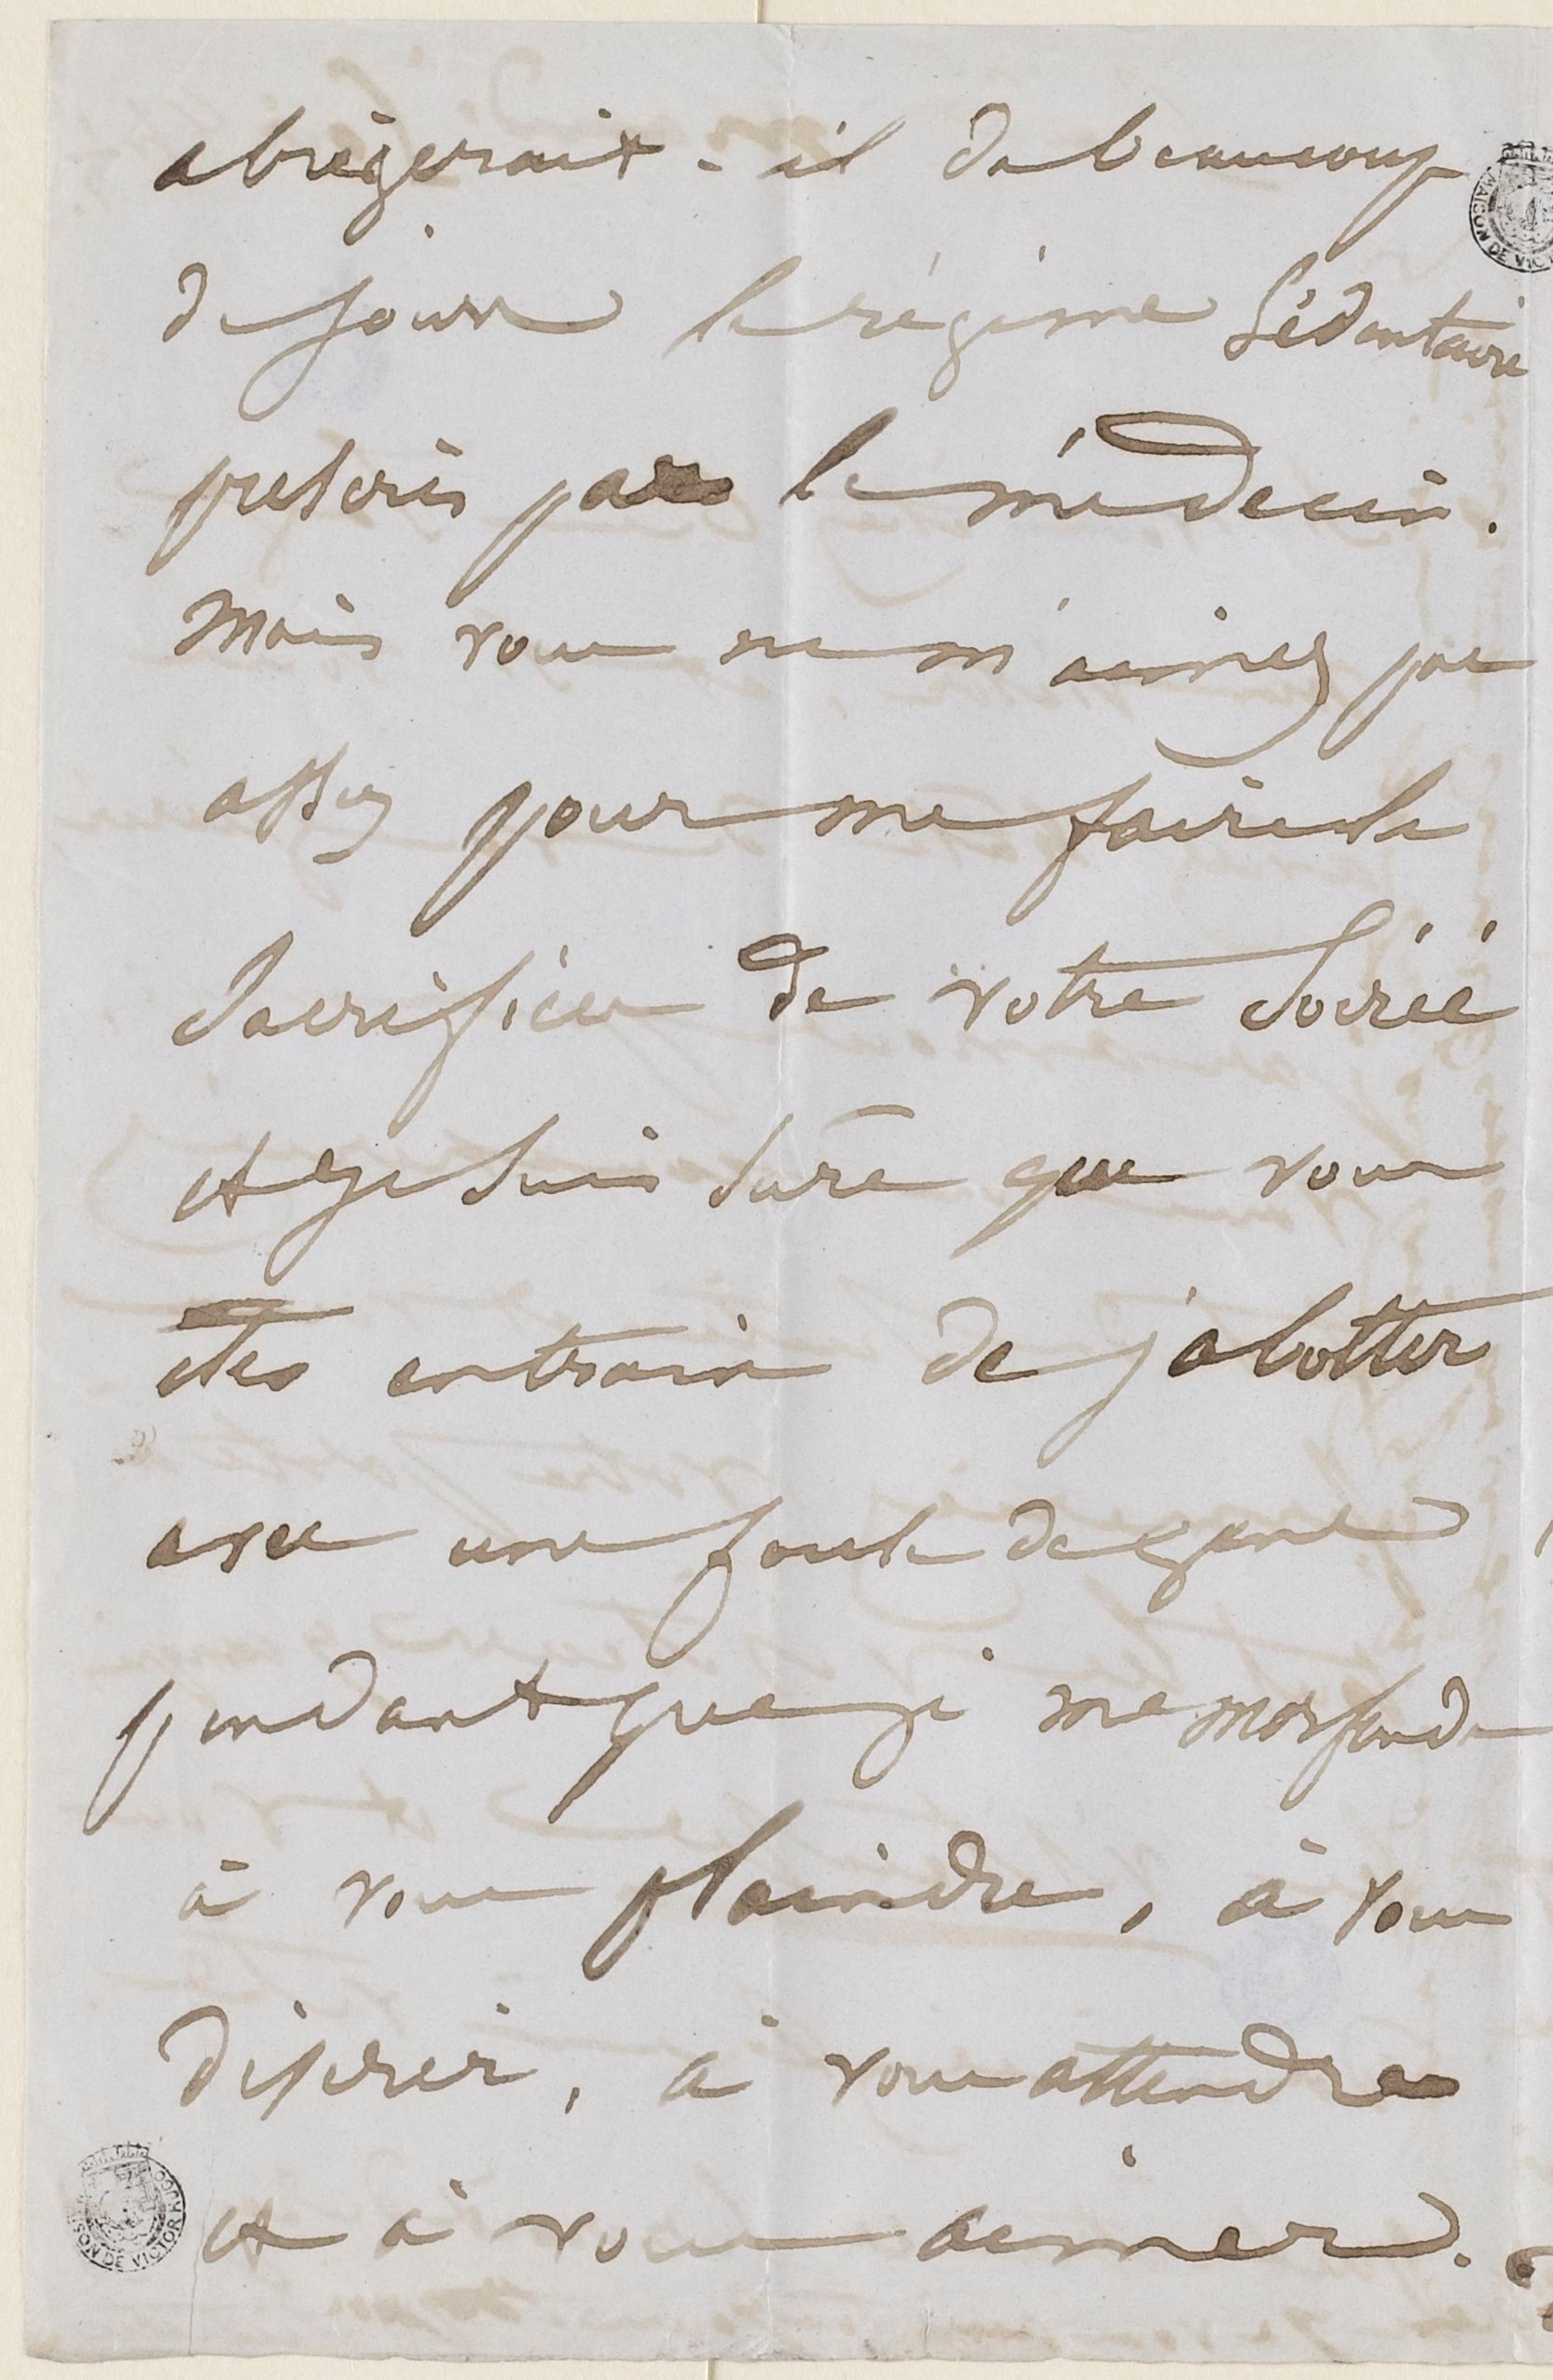 abrègerait-il de beaucoup
de jours le régime sédentaire
prescris par le médecin.
Mais vous ne m'aimez pas
assez pour me faire le
sacrifice de votre soirée
et je suis sûre que vous
êtes entrain de jabotter
avec une foule de gens
pendant que je me morfonds
à vous plaindre, à vous
désirer, à vous attendre
et à vous aimer.
MAISON DE VICTOR HUGO